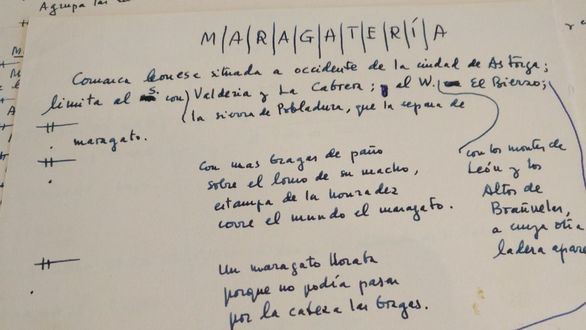 Agrupa las
M/A/R/A/G/A/T/E/R/Í/A
Comarca leonesa situada a occidente de la ciudad de Astorga;
limita al S. con Valderia y La Cabrera; y al W. El Bierzo;
la sierra de Pobladura, que la separa de
maragato.
Con unas bragas de paño
sobre el lomo de su macho,
estampa de la honradez
corre el mundo el maragato.
con los montes de
León y los
Altos de
Brañuelas,
a cuya otra
ladera apare
Un maragato lloraba
porque no podía pasar
por la cabeza las bragas.